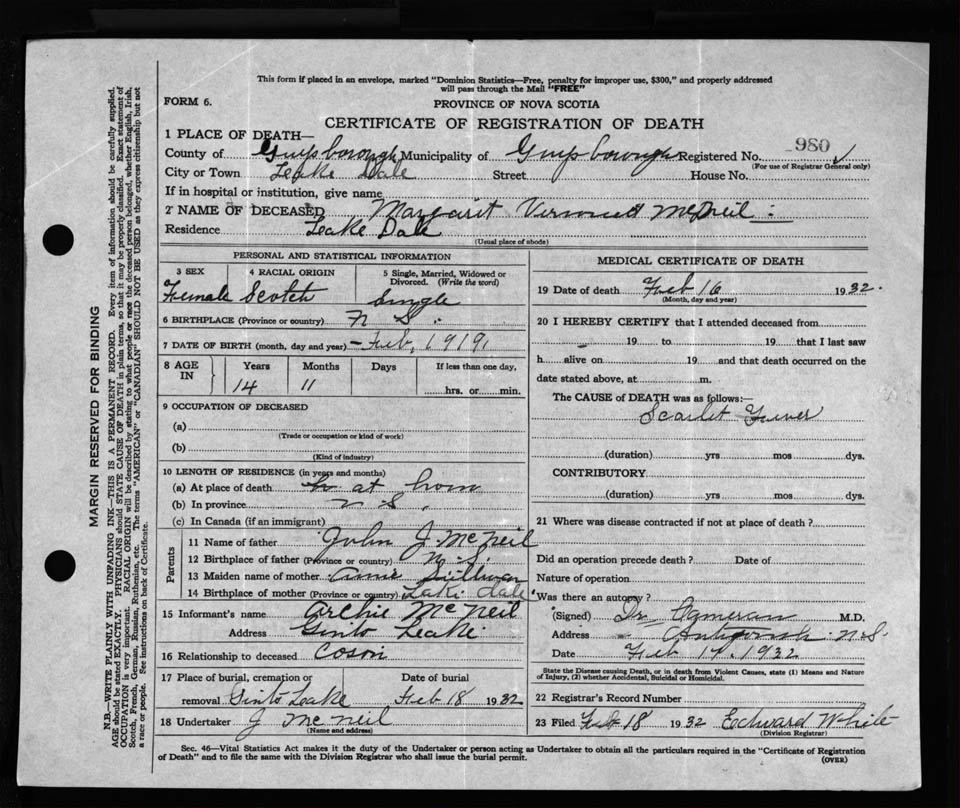 This form if placed in an envelope, marked "Dominion Statistics—Free, penalty for improper use, $300," and properly addressed
will pass through the Mail "FREE"
FORM 6.
PROVINCE OF NOVA SCOTIA
CERTIFICATE OF REGISTRATION OF DEATH
1 PLACE OF DEATH—
County of Guysborough Municipality of Guysborough Registered No. 980
(For use of Registrar General only)
City or Town Leake Dale Street House No.
If in hospital or institution, give name
2 NAME OF DECEASED Margaret McNeil
Residence Leake Dale
(Usual place of abode)
PERSONAL AND STATISTICAL INFORMATION
3 SEX 4 RACIAL ORIGIN 5 Single, Married, Widowed or Divorced. (Write the word)
Female Scotch Single
6 BIRTHPLACE (Province or country) N S
7 DATE OF BIRTH (month, day and year) Feb, 1919
8 AGE IN Years Months Days If less than one day,
14 11 hrs. or min.
9 OCCUPATION OF DECEASED
(a)
(Trade or occupation or kind of work)
(b)
(Kind of industry)
10 LENGTH OF RESIDENCE (in years and months)
(a) At place of death at hom
(b) In province N S.
(c) In Canada (if an immigrant)
Parents
11 Name of father John J. McNeil
12 Birthplace of father (Province or country) N. S
13 Maiden name of mother Anne Sullivan
14 Birthplace of mother (Province or country) Laki dale
15 Informant's name Archie McNeil
Address Ginto Leake
16 Relationship to deceased Coson
17 Place of burial, cremation or removal Ginto Leake Date of burial Feb 18 1932
18 Undertaker J McNeil
(Name and address)
MEDICAL CERTIFICATE OF DEATH
19 Date of death Feb 16 1932.
(Month, day and year)
20 I HEREBY CERTIFY that I attended deceased from
19 to 19 that I last saw
h alive on 19 and that death occurred on the
date stated above, at m.
The CAUSE of DEATH was as follows:—
Scarlet Fever
(duration) yrs mos dys.
CONTRIBUTORY
(duration) yrs mos dys.
21 Where was disease contracted if not at place of death?
Did an operation precede death? Date of
Nature of operation
Was there an autopsy?
(Signed) Dr Cameran M.D.
Address Antigonish N.S
Date Feb 17, 1932
State the Disease causing Death, or in death from Violent Causes, state (1) Means and Nature of Injury, (2) whether Accidental, Suicidal or Homicidal.
22 Registrar's Record Number
23 Filed Feb 18 1932 Edward White
(Division Registrar)
Sec. 46—Vital Statistics Act makes it the duty of the Undertaker or person acting as Undertaker to obtain all the particulars required in the "Certificate of Registration
of Death" and to file the same with the Division Registrar who shall issue the burial permit.
(OVER)
MARGIN RESERVED FOR BINDING
N.B.—WRITE PLAINLY WITH UNFADING INK—THIS IS A PERMANENT RECORD. Every item of information should be carefully supplied.
AGE should be stated EXACTLY. PHYSICIANS should STATE CAUSE OF DEATH in plain terms, so that it may be properly classified. Exact statement of
OCCUPATION is very important. RACIAL ORIGIN will be described by stating to what people or race the deceased person belonged, whether English, Irish,
Scotch, French, German, Russian, Ruthenian, etc. The terms "AMERICAN" or "CANADIAN" SHOULD NOT BE USED as they express citizenship but not
a race or people. See instructions on back of Certificate.